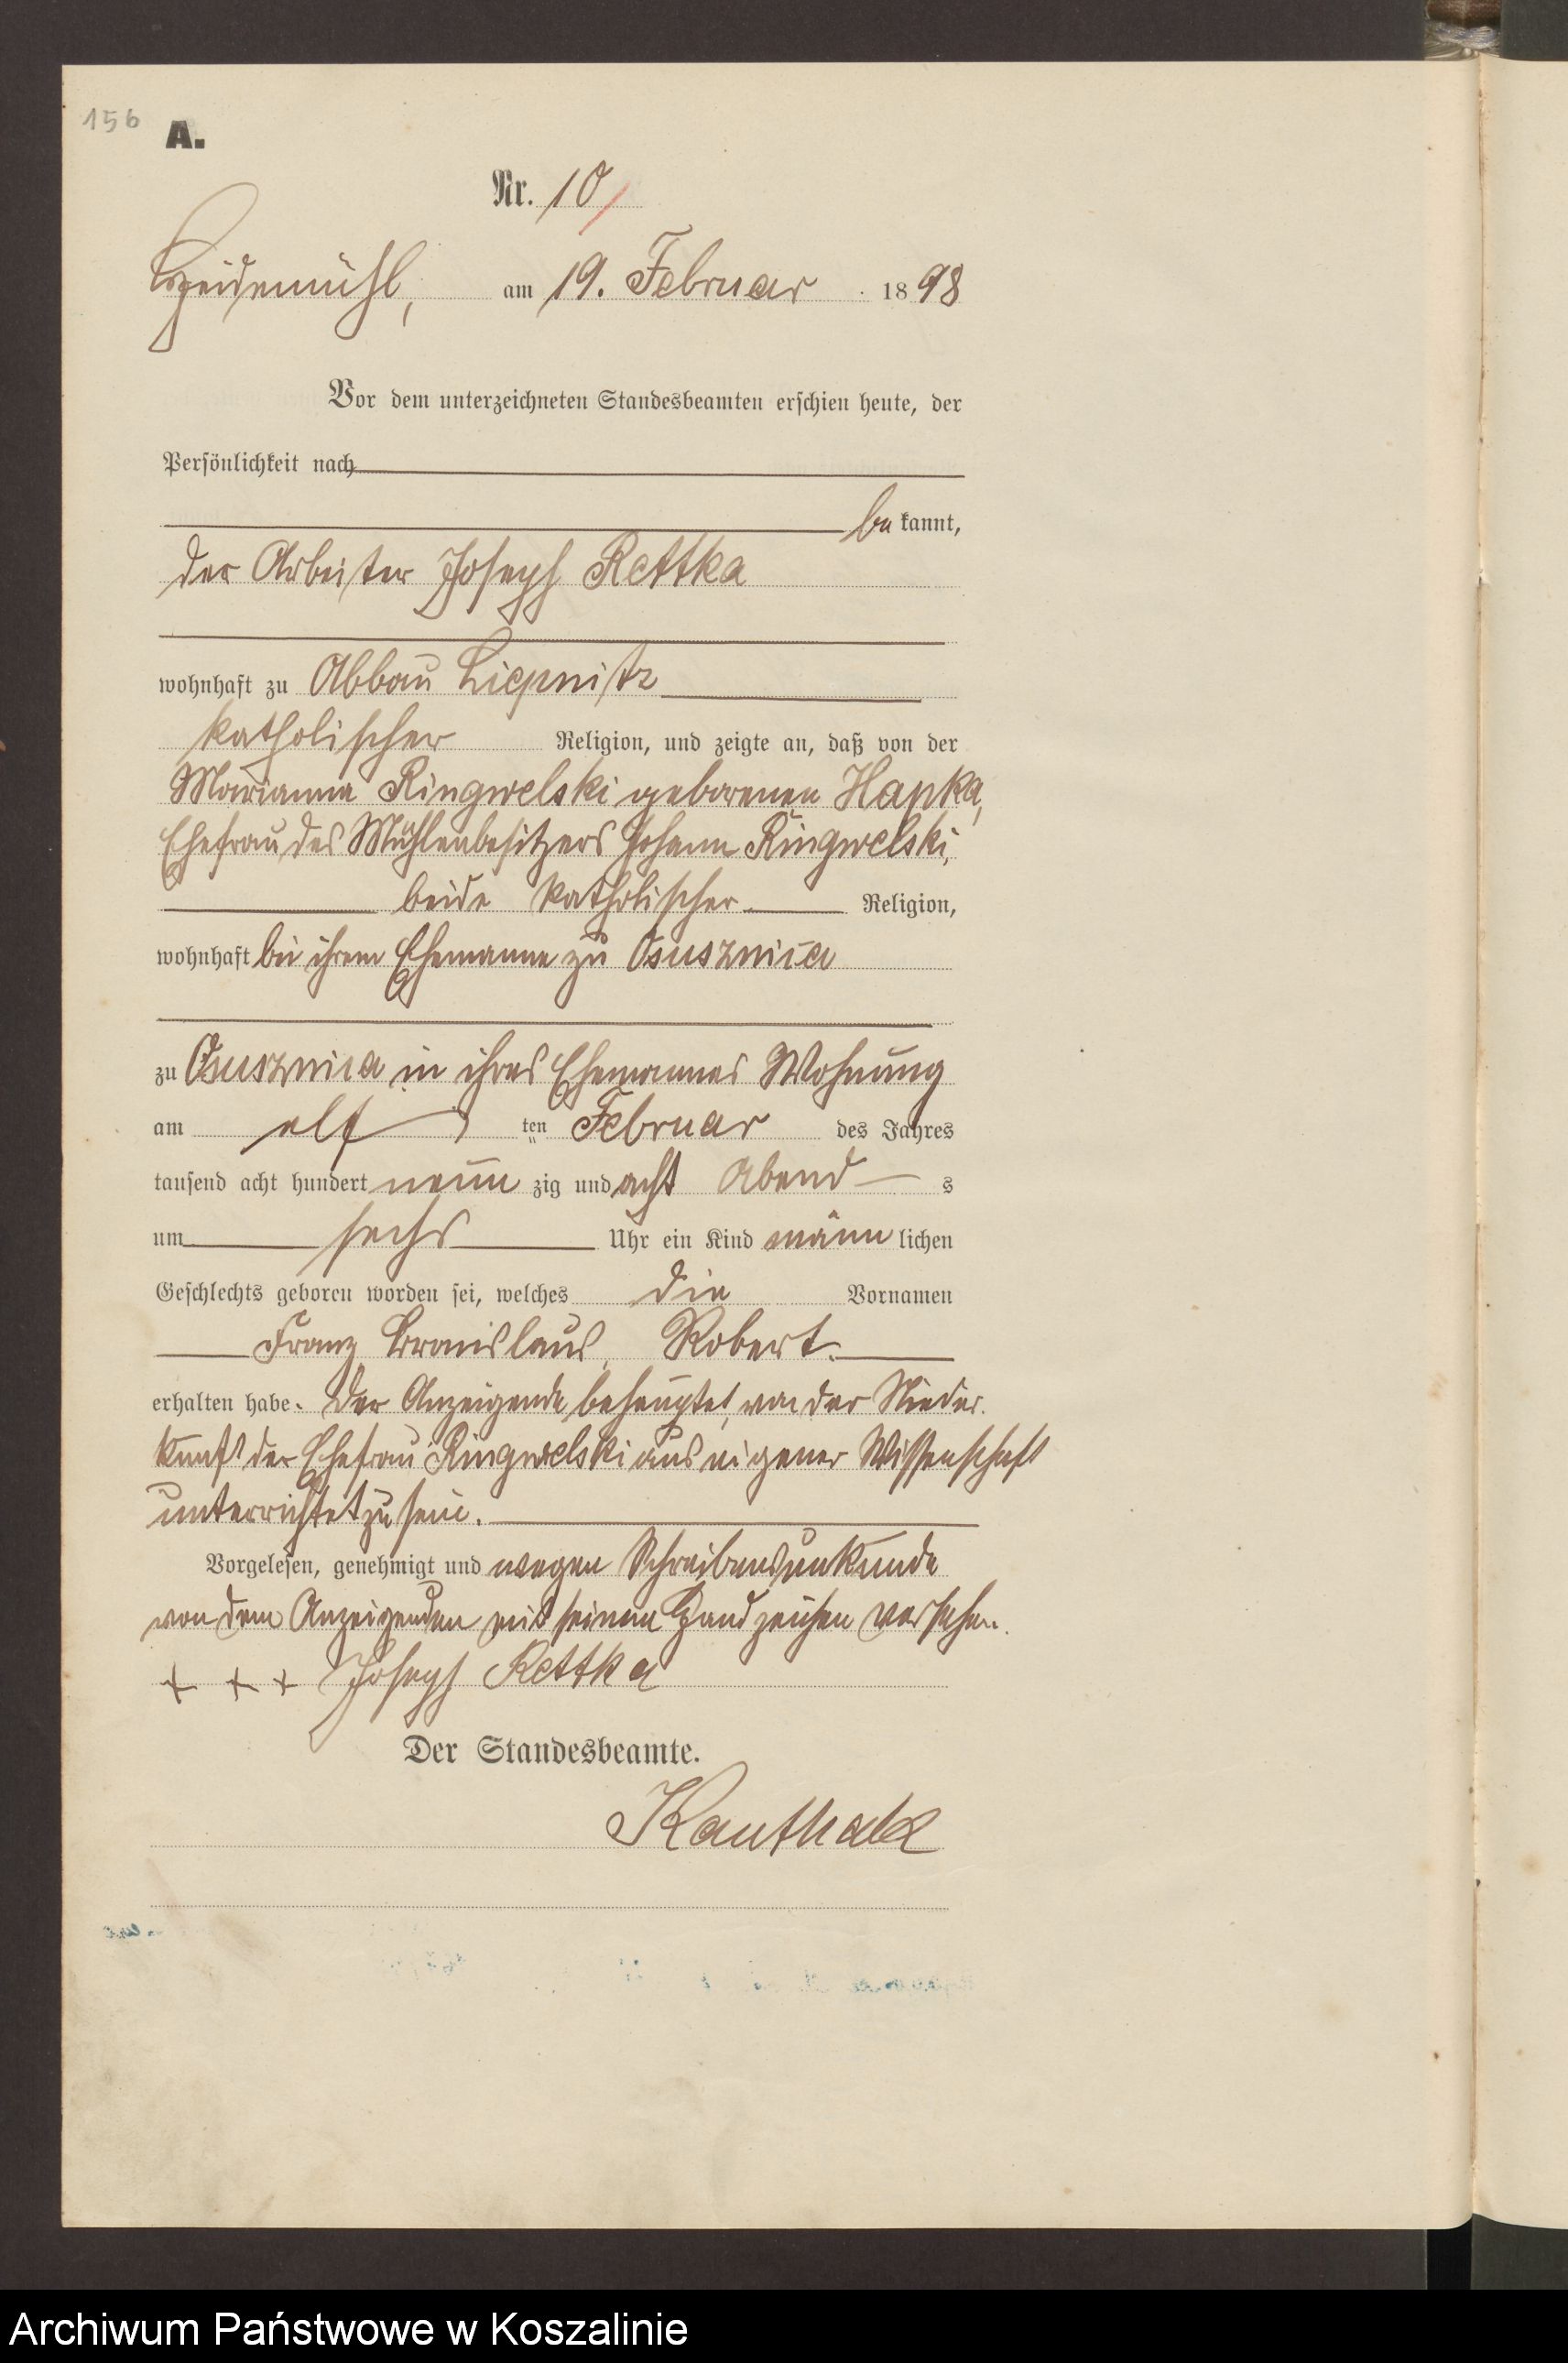 156
A.
Nr. 10
Heidemühl, am 19. Februar 1898
Vor dem unterzeichneten Standesbeamten erschien heute, der
Persönlichkeit nach
be kannt,
der Arbeiter Joseph Rettka
wohnhaft zu Abbau Liepnitz
katholischer Religion, und zeigte an, daß von der
Marianna Ringwelski geborenen Hapka,
Ehefrau des Mühlenbesitzers Johann Ringwelski,
beide katholischer Religion,
wohnhaft bei ihrem Ehemanne zu Osusznica
zu Osusznica in ihres Ehemannes Wohnung
am elf ten Februar des Jahres
tausend acht hundert neun zig und acht Abend s
um sechs Uhr ein Kind männ lichen
Geschlechts geboren worden sei, welches die Vornamen
Franz Bronislaus, Robert.
erhalten habe. Der Anzeigende behauptet, von der Nieder-
kunft der Ehefrau Ringwelski aus eigener Wissenschaft
unterrichtet zu sein.
Vorgelesen, genehmigt und wegen Schreibensunkunde
von dem Anzeigenden mit seinem Handzeichen versehen.
+ + + Joseph Rettka
Der Standesbeamte.
Kauthack
Archiwum Państwowe w Koszalinie